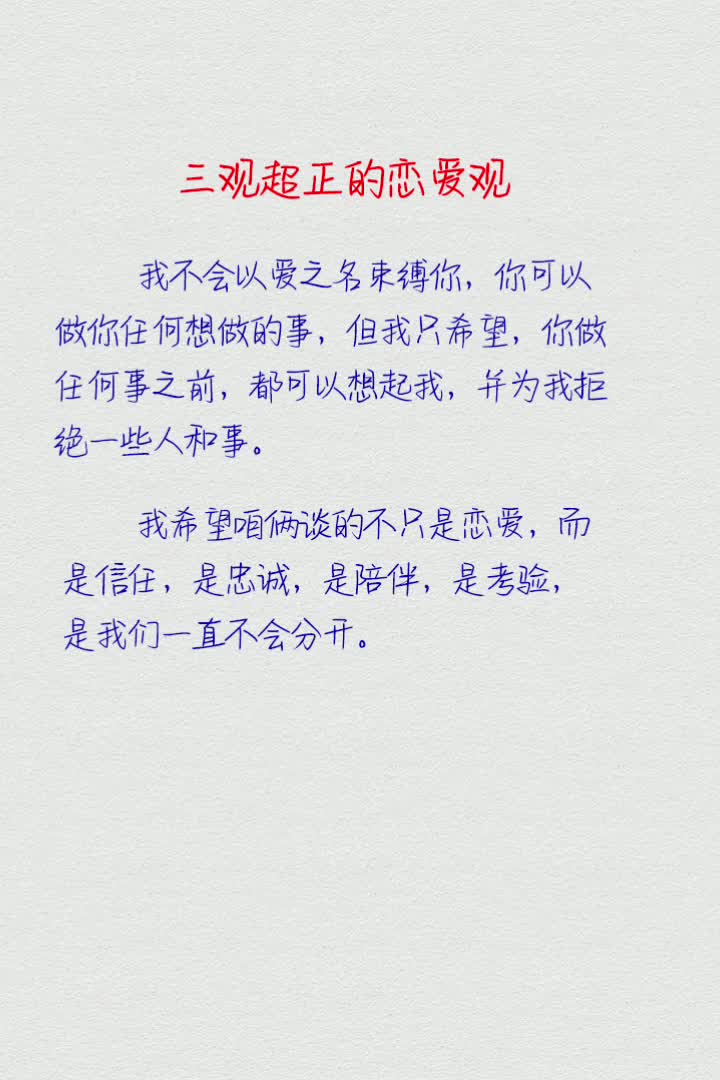 三观超正的恋爱观
我不会以爱之名束缚你，你可以
做你任何想做的事，但我只希望，你做
任何事之前，都可以想起我，并为我拒
绝一些人和事。
我希望咱俩谈的不只是恋爱，而
是信任，是忠诚，是陪伴，是考验，
是我们一直不会分开。